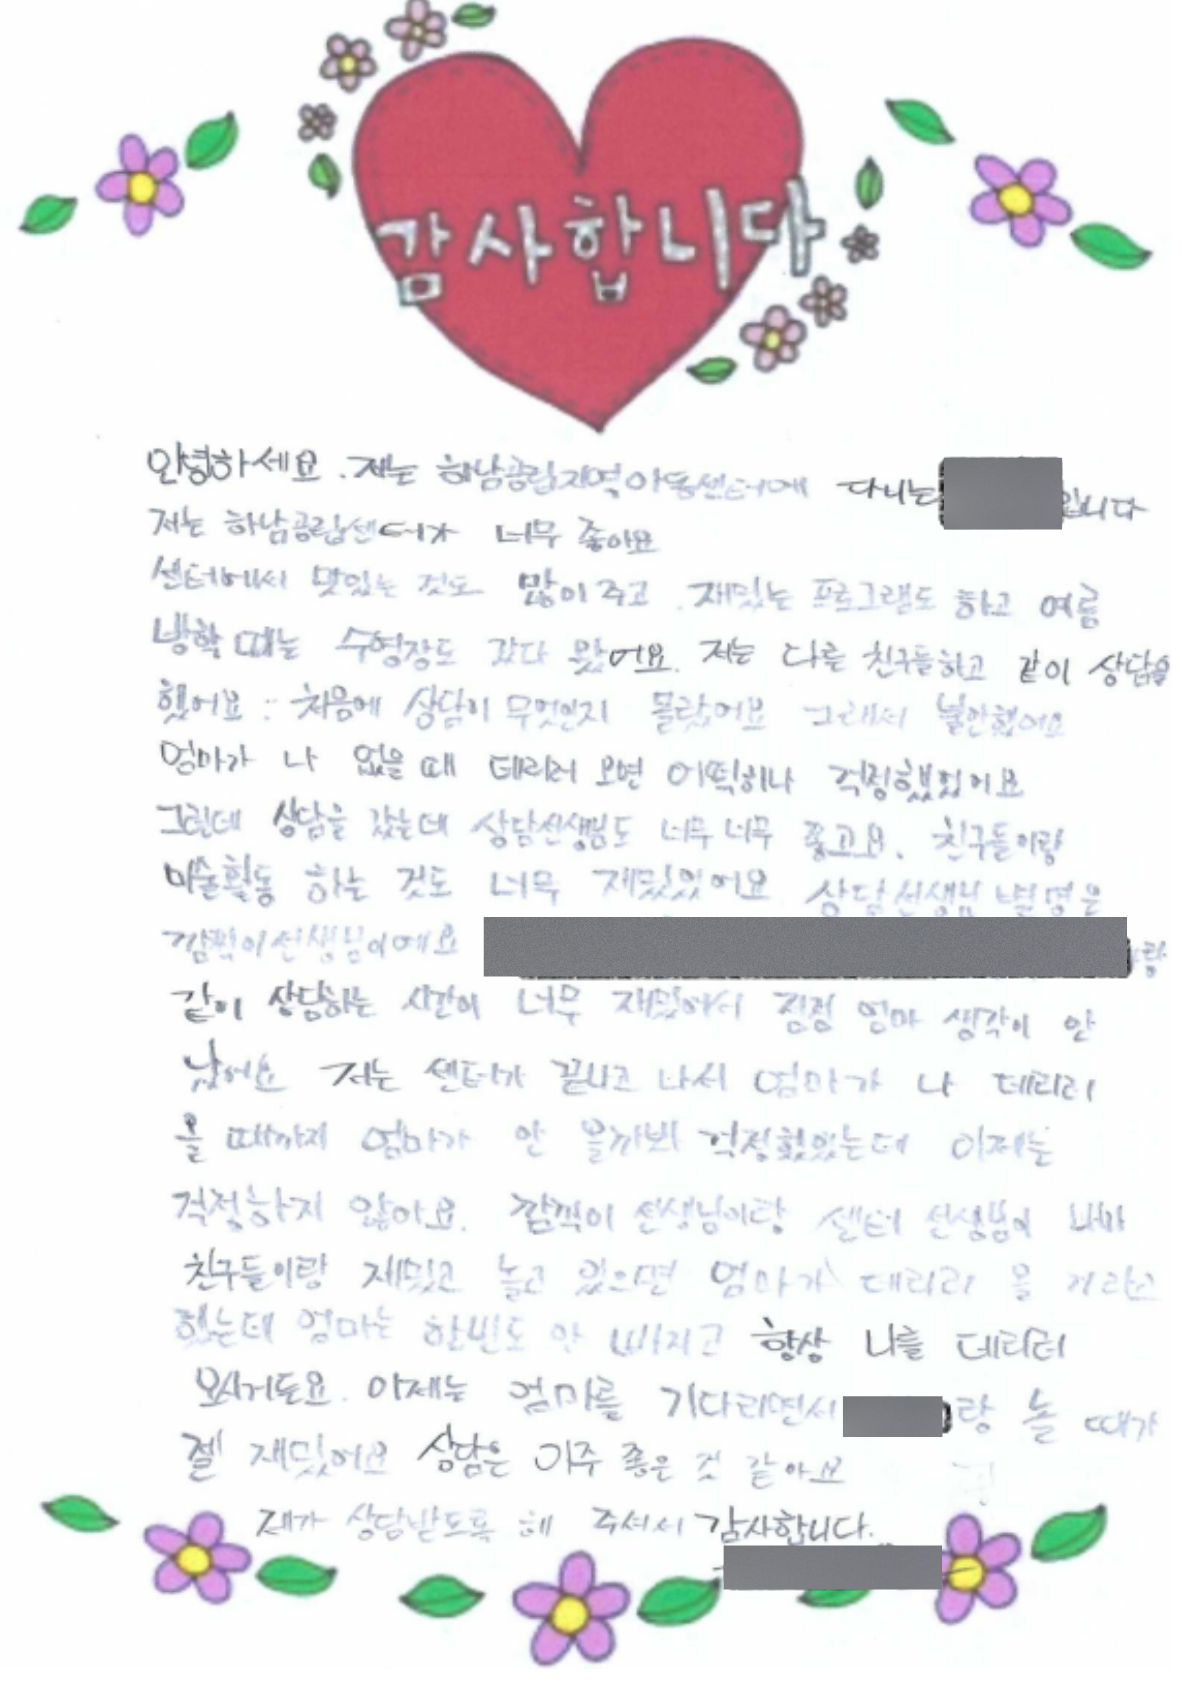 감사합니다
안녕하세요. 저는 하남공립지역아동센터에 다니는 입니다
저는 하남공립센터가 너무 좋아요
센터에서 맛있는 것도 많이 주고. 재밌는 프로그램도 하고 여름
방학 때는 수영장도 갔다 왔어요. 저는 다른 친구들하고 같이 상담을
했어요. 처음에 상담이 무엇인지 몰랐어요 그래서 불안했어요
엄마가 나 없을 때 데리러 오면 어떡하나 걱정했었어요
그런데 상담을 갔는데 상담선생님도 너무 너무 좋고요. 친구들이랑
미술활동 하는 것도 너무 재밌었어요 상담선생님 별명은
깜찍이선생님이에요 랑
같이 상담하는 시간이 너무 재밌어서 점점 엄마 생각이 안
났어요 저는 센터가 끝나고 나서 엄마가 나 데리러
올 때까지 엄마가 안 올까봐 걱정했었는데 이제는
걱정하지 않아요. 깜찍이 선생님이랑 센터 선생님이
친구들이랑 재밌고 놀고 있으면 엄마가 데리러 올 거라고
했는데 엄마는 한번도 안 빠지고 항상 나를 데리러
오시거든요. 이제는 엄마를 기다리면서 랑 놀 때가
젤 재밌어요 상담은 아주 좋은 것 같아요
제가 상담받도록 해 주셔서 감사합니다.